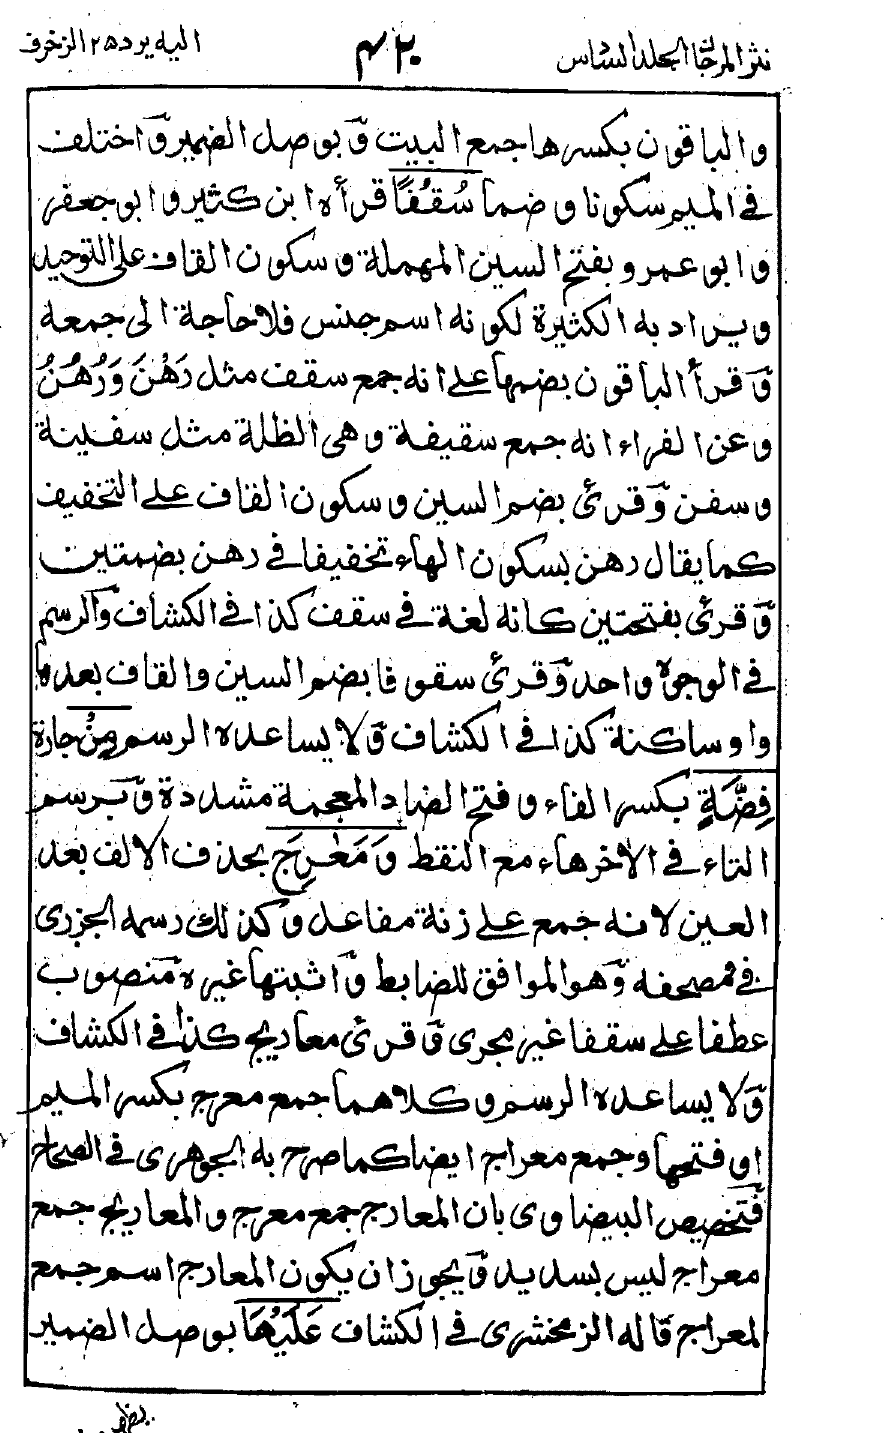 نثر المرجان الجلد السادس
٤٢٠
اليه يرد ٢٥ الزخرف
والباقون بكسرها جمع البيت وَبوصل الضمير وَاختلف
في الميم سكونا وضما سُقُفًا قرأه ابن كثير وابو جعفر
وابو عمرو بفتح السين المهملة وسكون القاف على التوحيد
ويراد به الكثيرة لكونه اسم جنس فلا حاجة الى جمعه
وَقرأ الباقون بضمها على انه جمع سقف مثل رَهْنَ وَرُهُنُ
وعن الفراء انه جمع سقيفة وهى الظلة مثل سفينة
وسفن وَقرئ بضم السين وسكون القاف على التخفيف
كما يقال رهن بسكون الهاء تخفيفا في رهن بضمتين
وَقرئ بفتحتين كانه لغة في سقف كذا في الكشاف وَالرسم
في الوجوه واحد وَقرئ سقوفا بضم السين والقاف بعدها
واو ساكنة كذا في الكشاف وَلا يساعده الرسم مِنْ جارة
فِضَّةٍ بكسر الفاء وفتح الضاد المعجمة مشددة وَبرسم
التاء في الاخر هاء مع النقط وَمَعٰرِجَ بحذف الالف بعد
العين لانه جمع على زنة مفاعل وكذلك رسمه الجزرى
في مصحفه وَهو الموافق للضابط وَاثبتها غيره مَنصوب
عطفا على سقفا غير مجرى وَقرئ معاريج كذا في الكشاف
وَلا يساعده الرسم وكلاهما جمع معرج بكسر الميم
او فتحها وجمع معراج ايضا كما صرح به الجوهرى في الصحاح
فَتخصيص البيضاوى بان المعارج جمع معرج والمعاريج جمع
معراج ليس بسديد وَيجوز ان يكون المعارج اسم جمع
لمعراج قاله الزمخشرى في الكشاف عَلَيْهَا بوصل الضمير